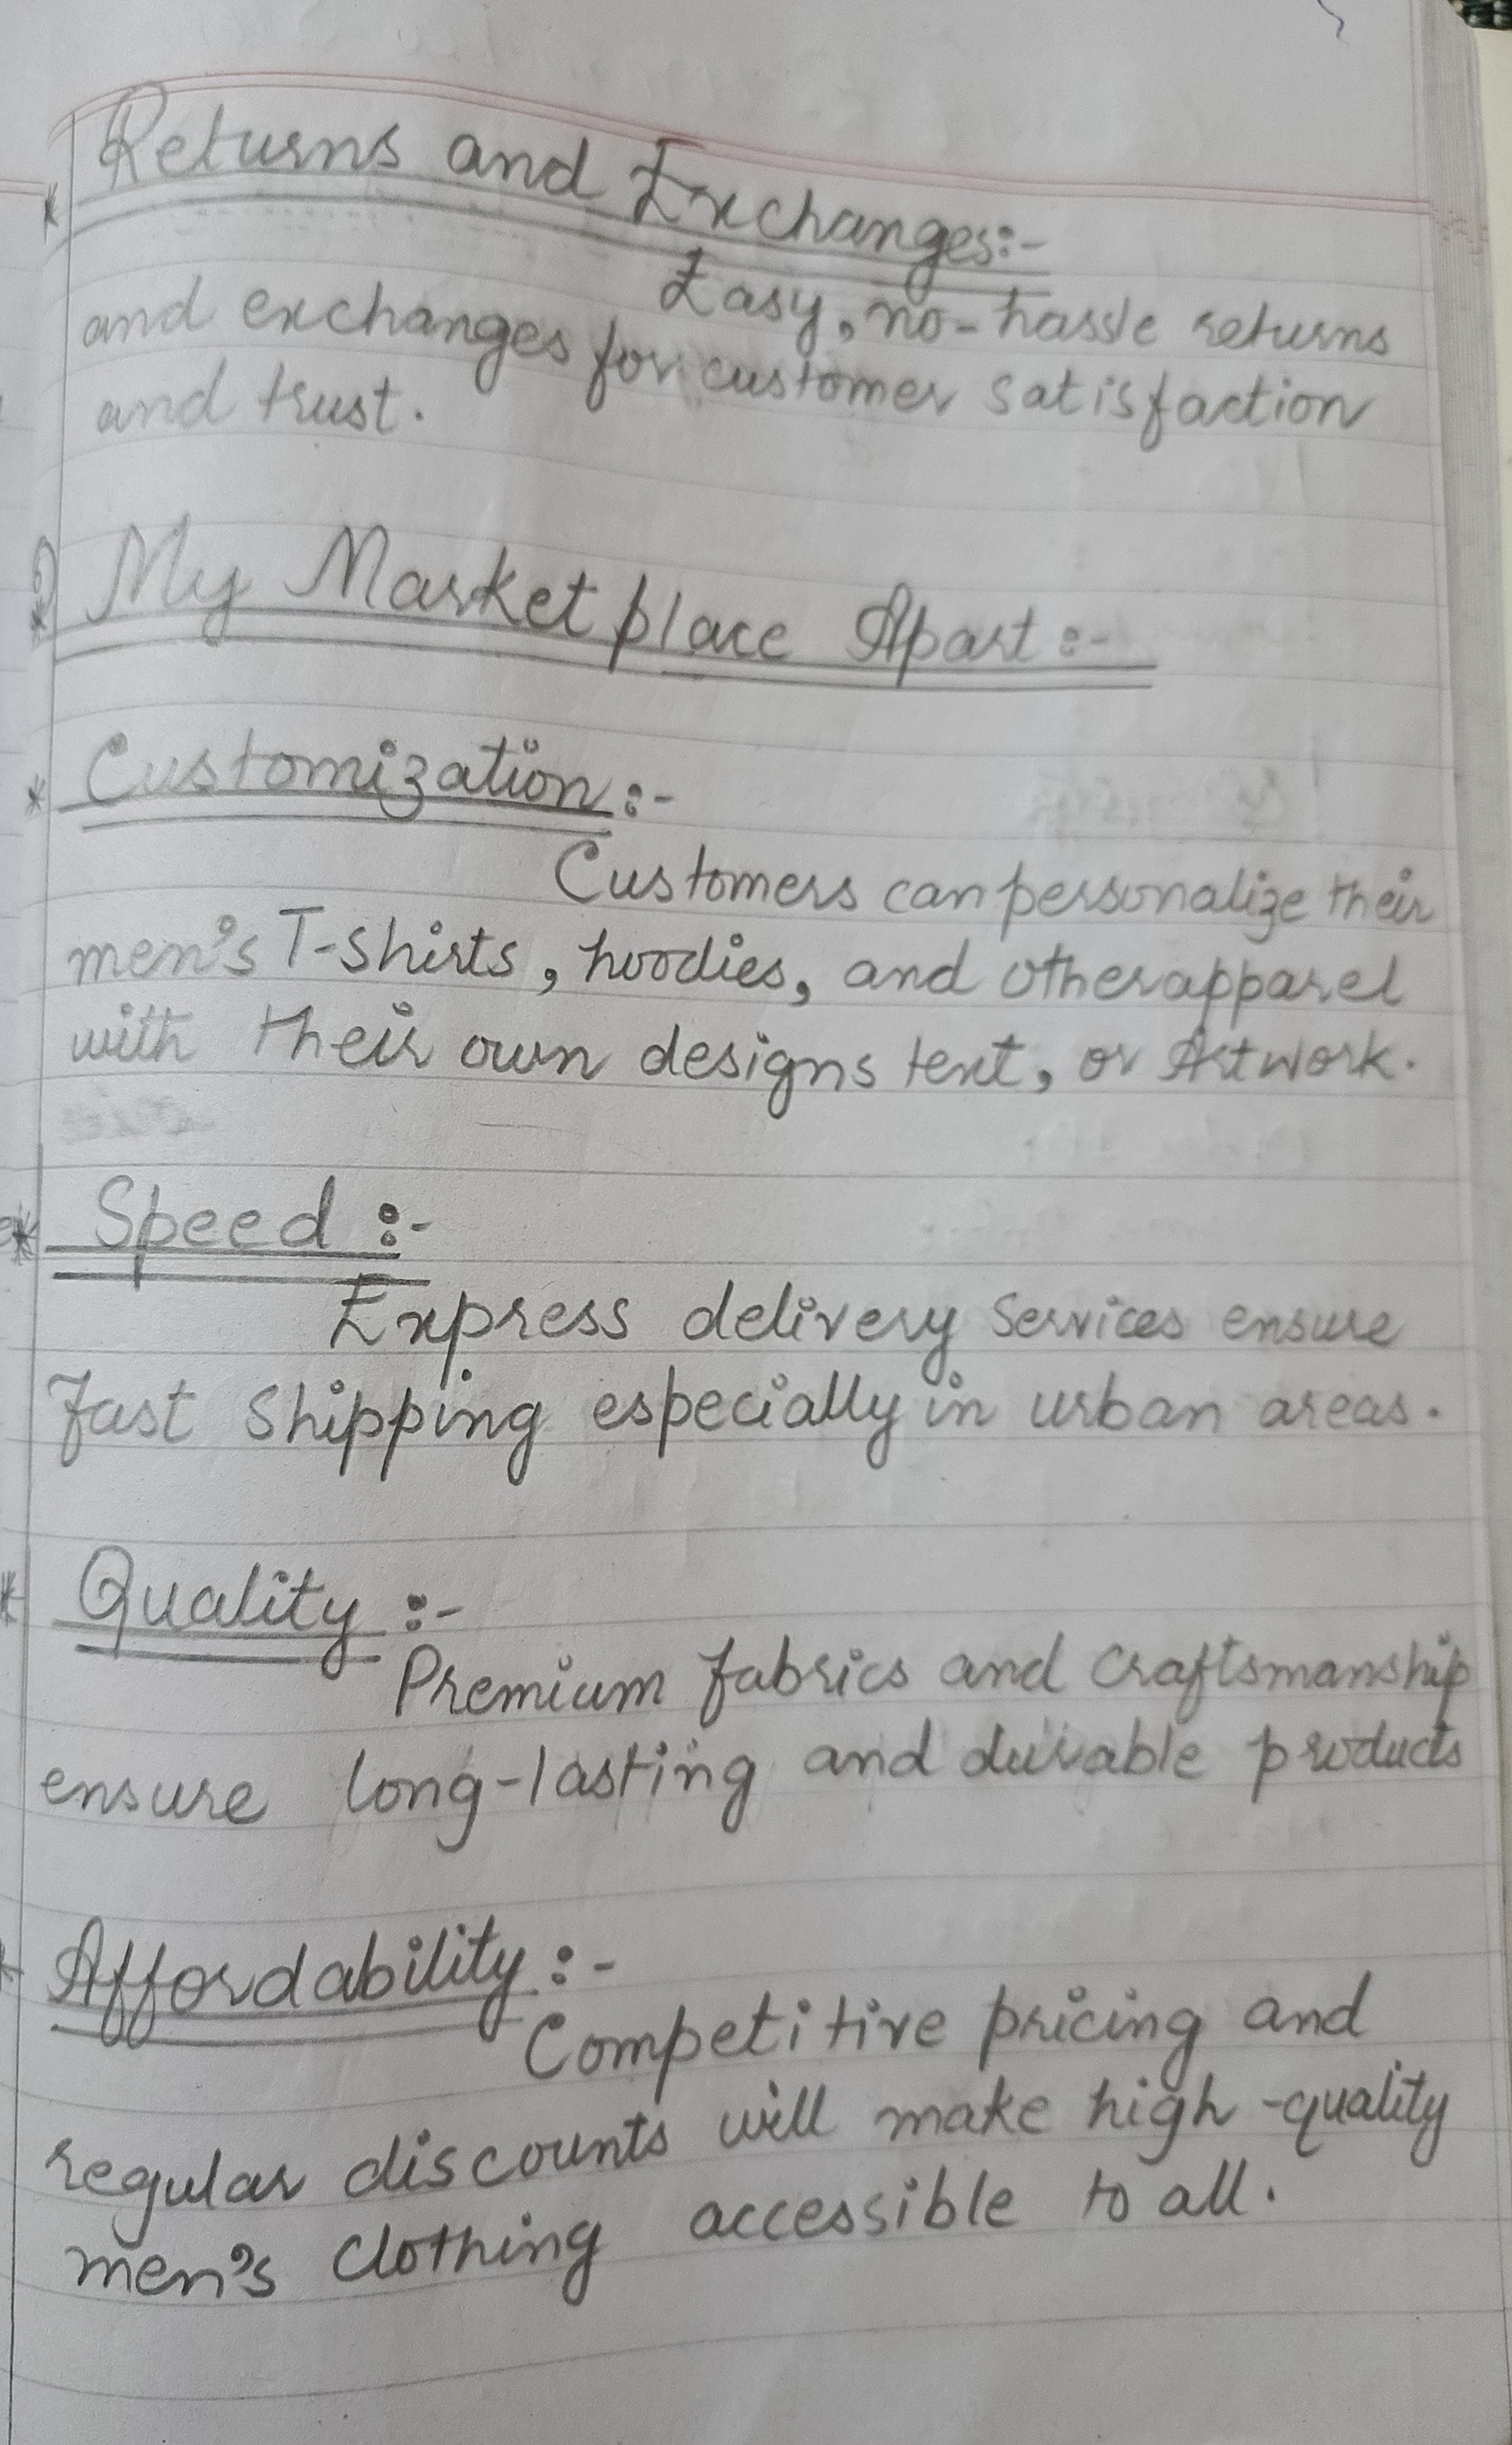 * Returns and Exchanges:-
Easy, no-hassle returns
and exchanges for customer satisfaction
and trust.
My Marketplace Apart :-
* Customization :-
Customers can personalize their
men's T-shirts, hoodies, and other apparel
with their own designs text, or Artwork.
* Speed :-
Express delivery Services ensure
fast shipping especially in urban areas.
* Quality :-
Premium fabrics and craftsmanship
ensure long-lasting and durable products
* Affordability :-
Competitive pricing and
regular discounts will make high-quality
men's clothing accessible to all.